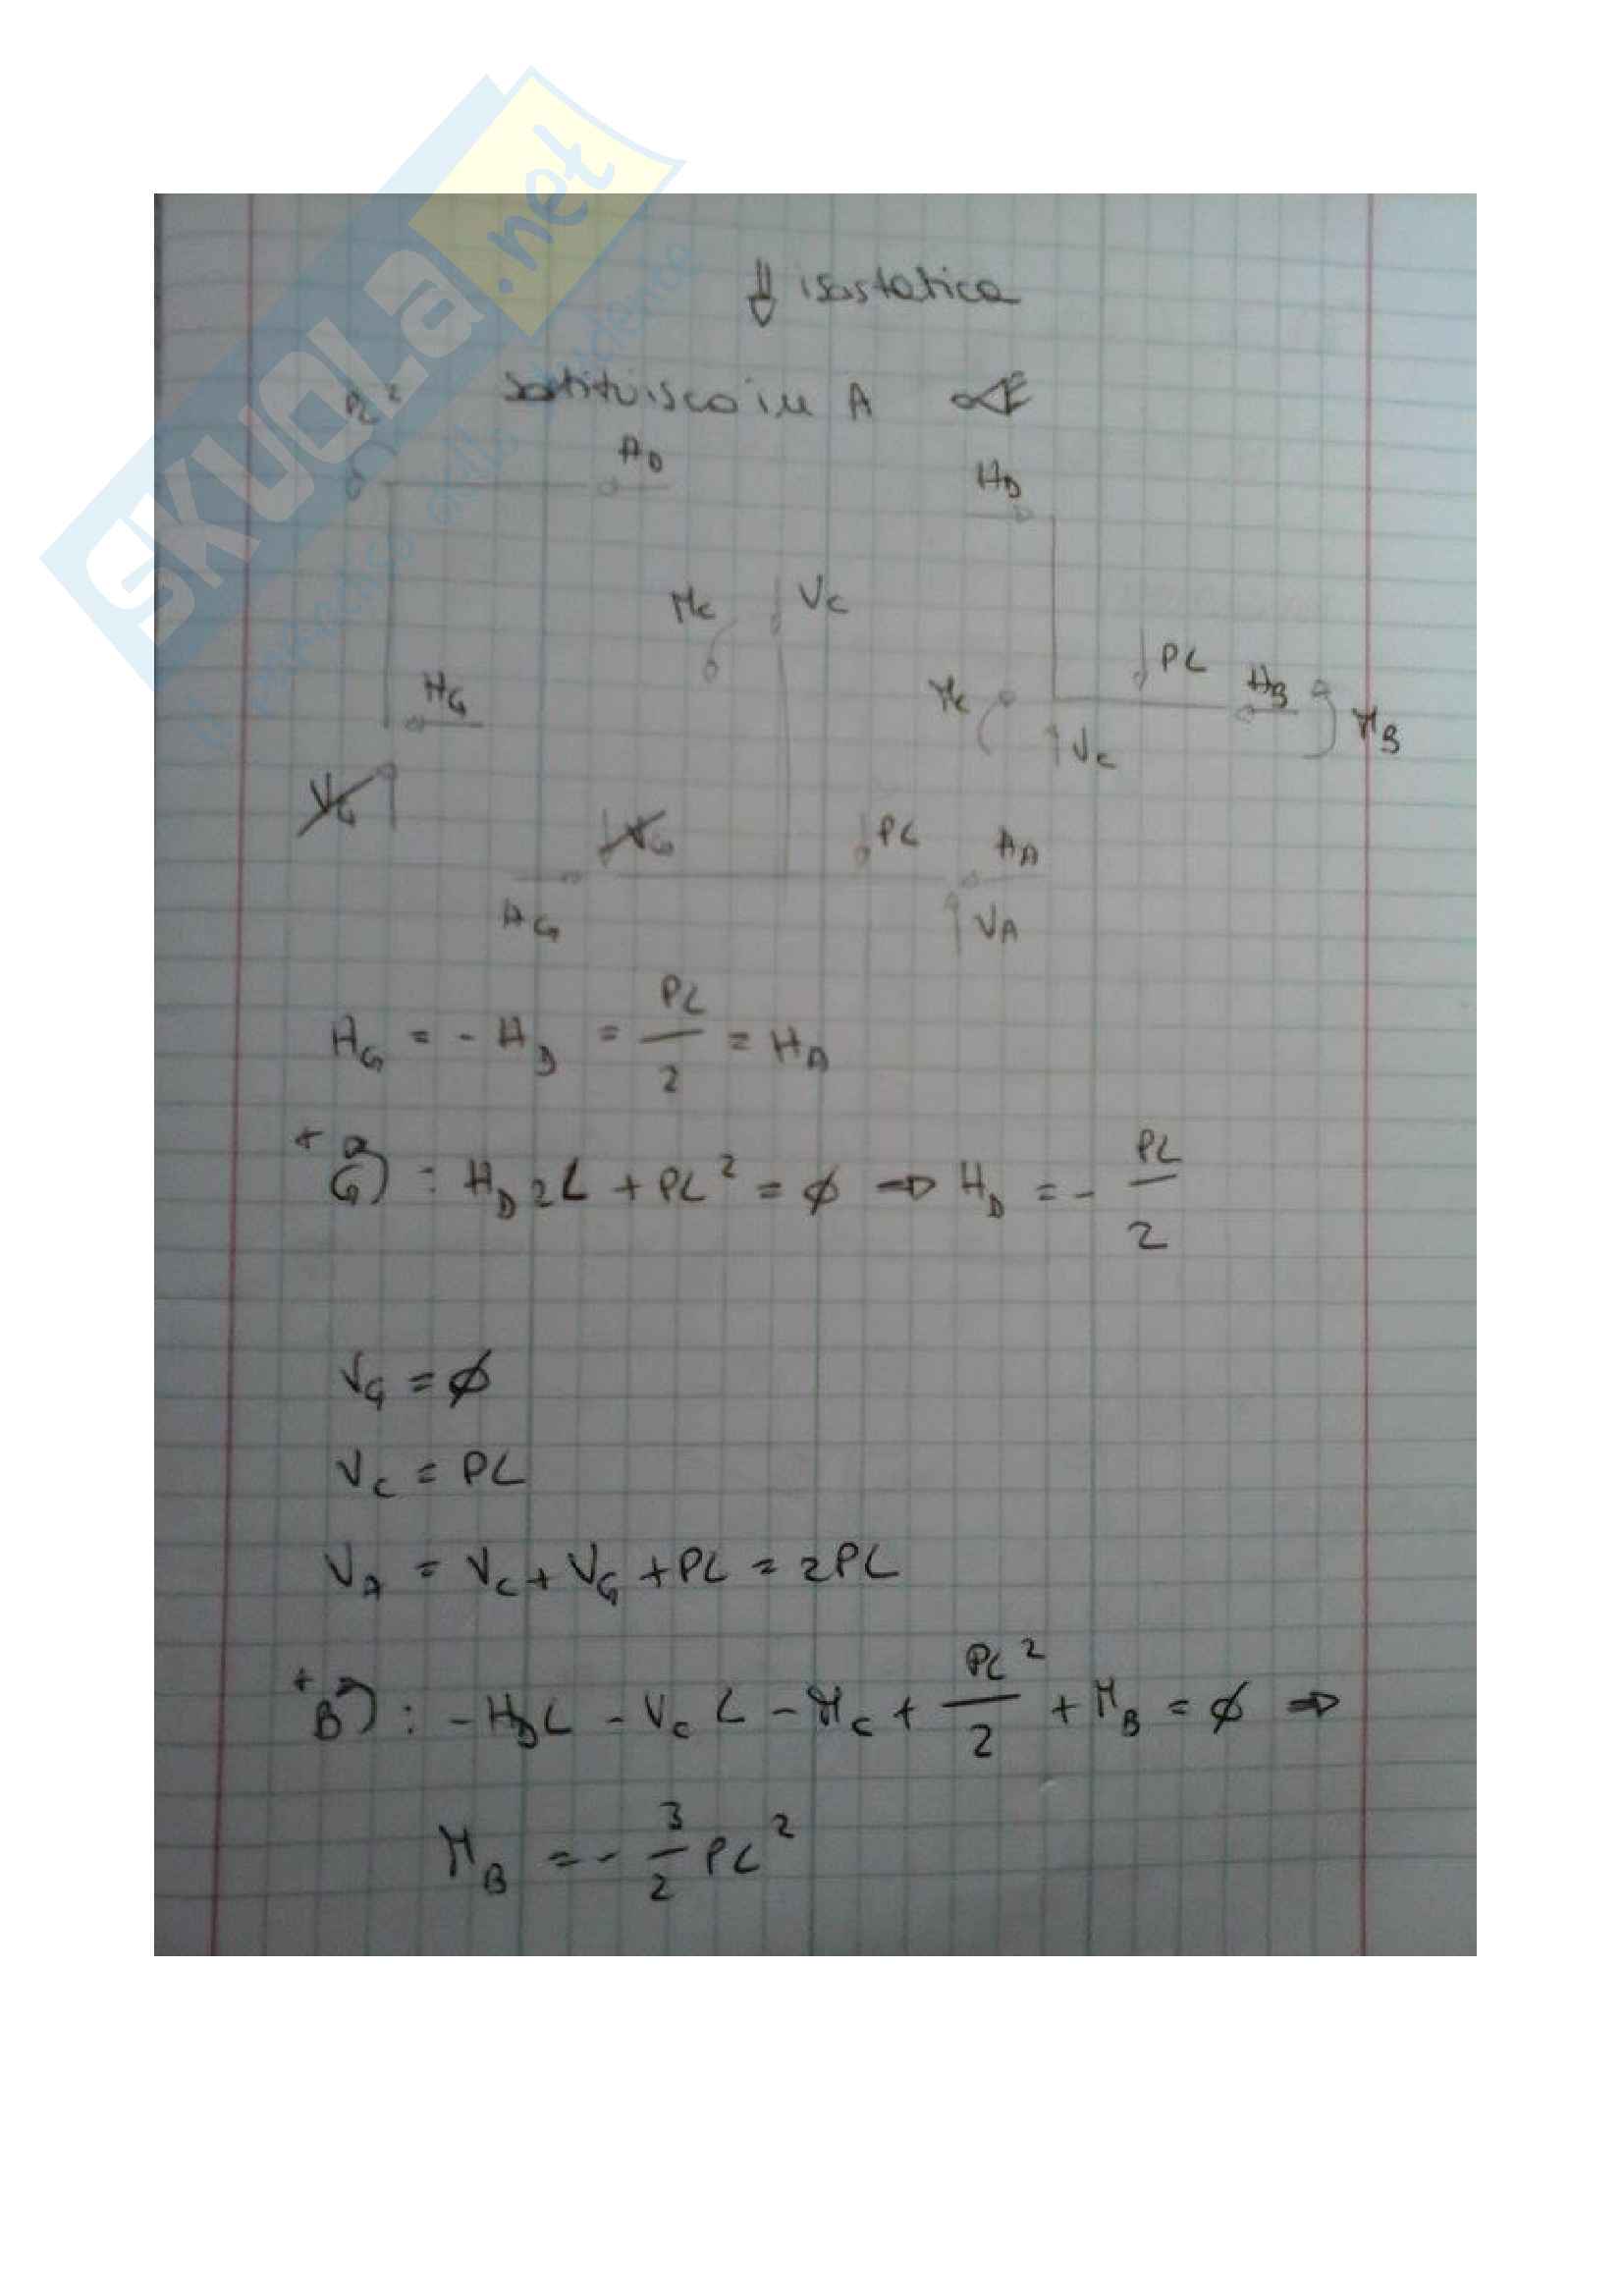 SKUOLA.net
⇓ isostatica
sostituisco in A
PL²
H_D
H_D
M_C
V_C
PL
H_B
M_C
M_B
H_G
V_C
V_G
V_G
PL
H_A
H_G
V_A
H_G = - H_D = PL/2 = H_A
+ G) : H_D 2L + PL² = ϕ ⇒ H_D = - PL/2
V_G = ϕ
V_C = PL
V_A = V_C + V_G + PL = 2PL
+ B) : - H_D L - V_C L - M_C + PL²/2 + M_B = ϕ ⇒
M_B = - 3/2 PL²